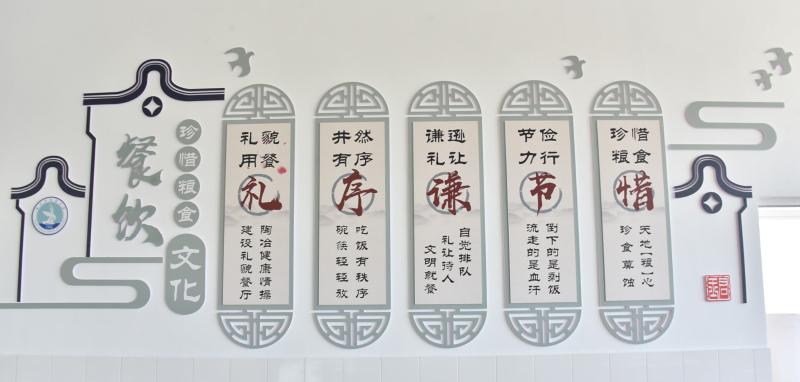 餐饮
珍惜粮食
文化
礼貌
用餐
礼
陶冶健康情操
建设礼貌餐厅
井然
有序
序
吃饭有秩序
碗筷轻轻放
谦逊
礼让
谦
自觉排队
礼让待人
文明就餐
节俭
力行
节
倒下的是剩饭
流走的是血汗
珍惜
粮食
惜
天地【粮】心
珍食莫蚀